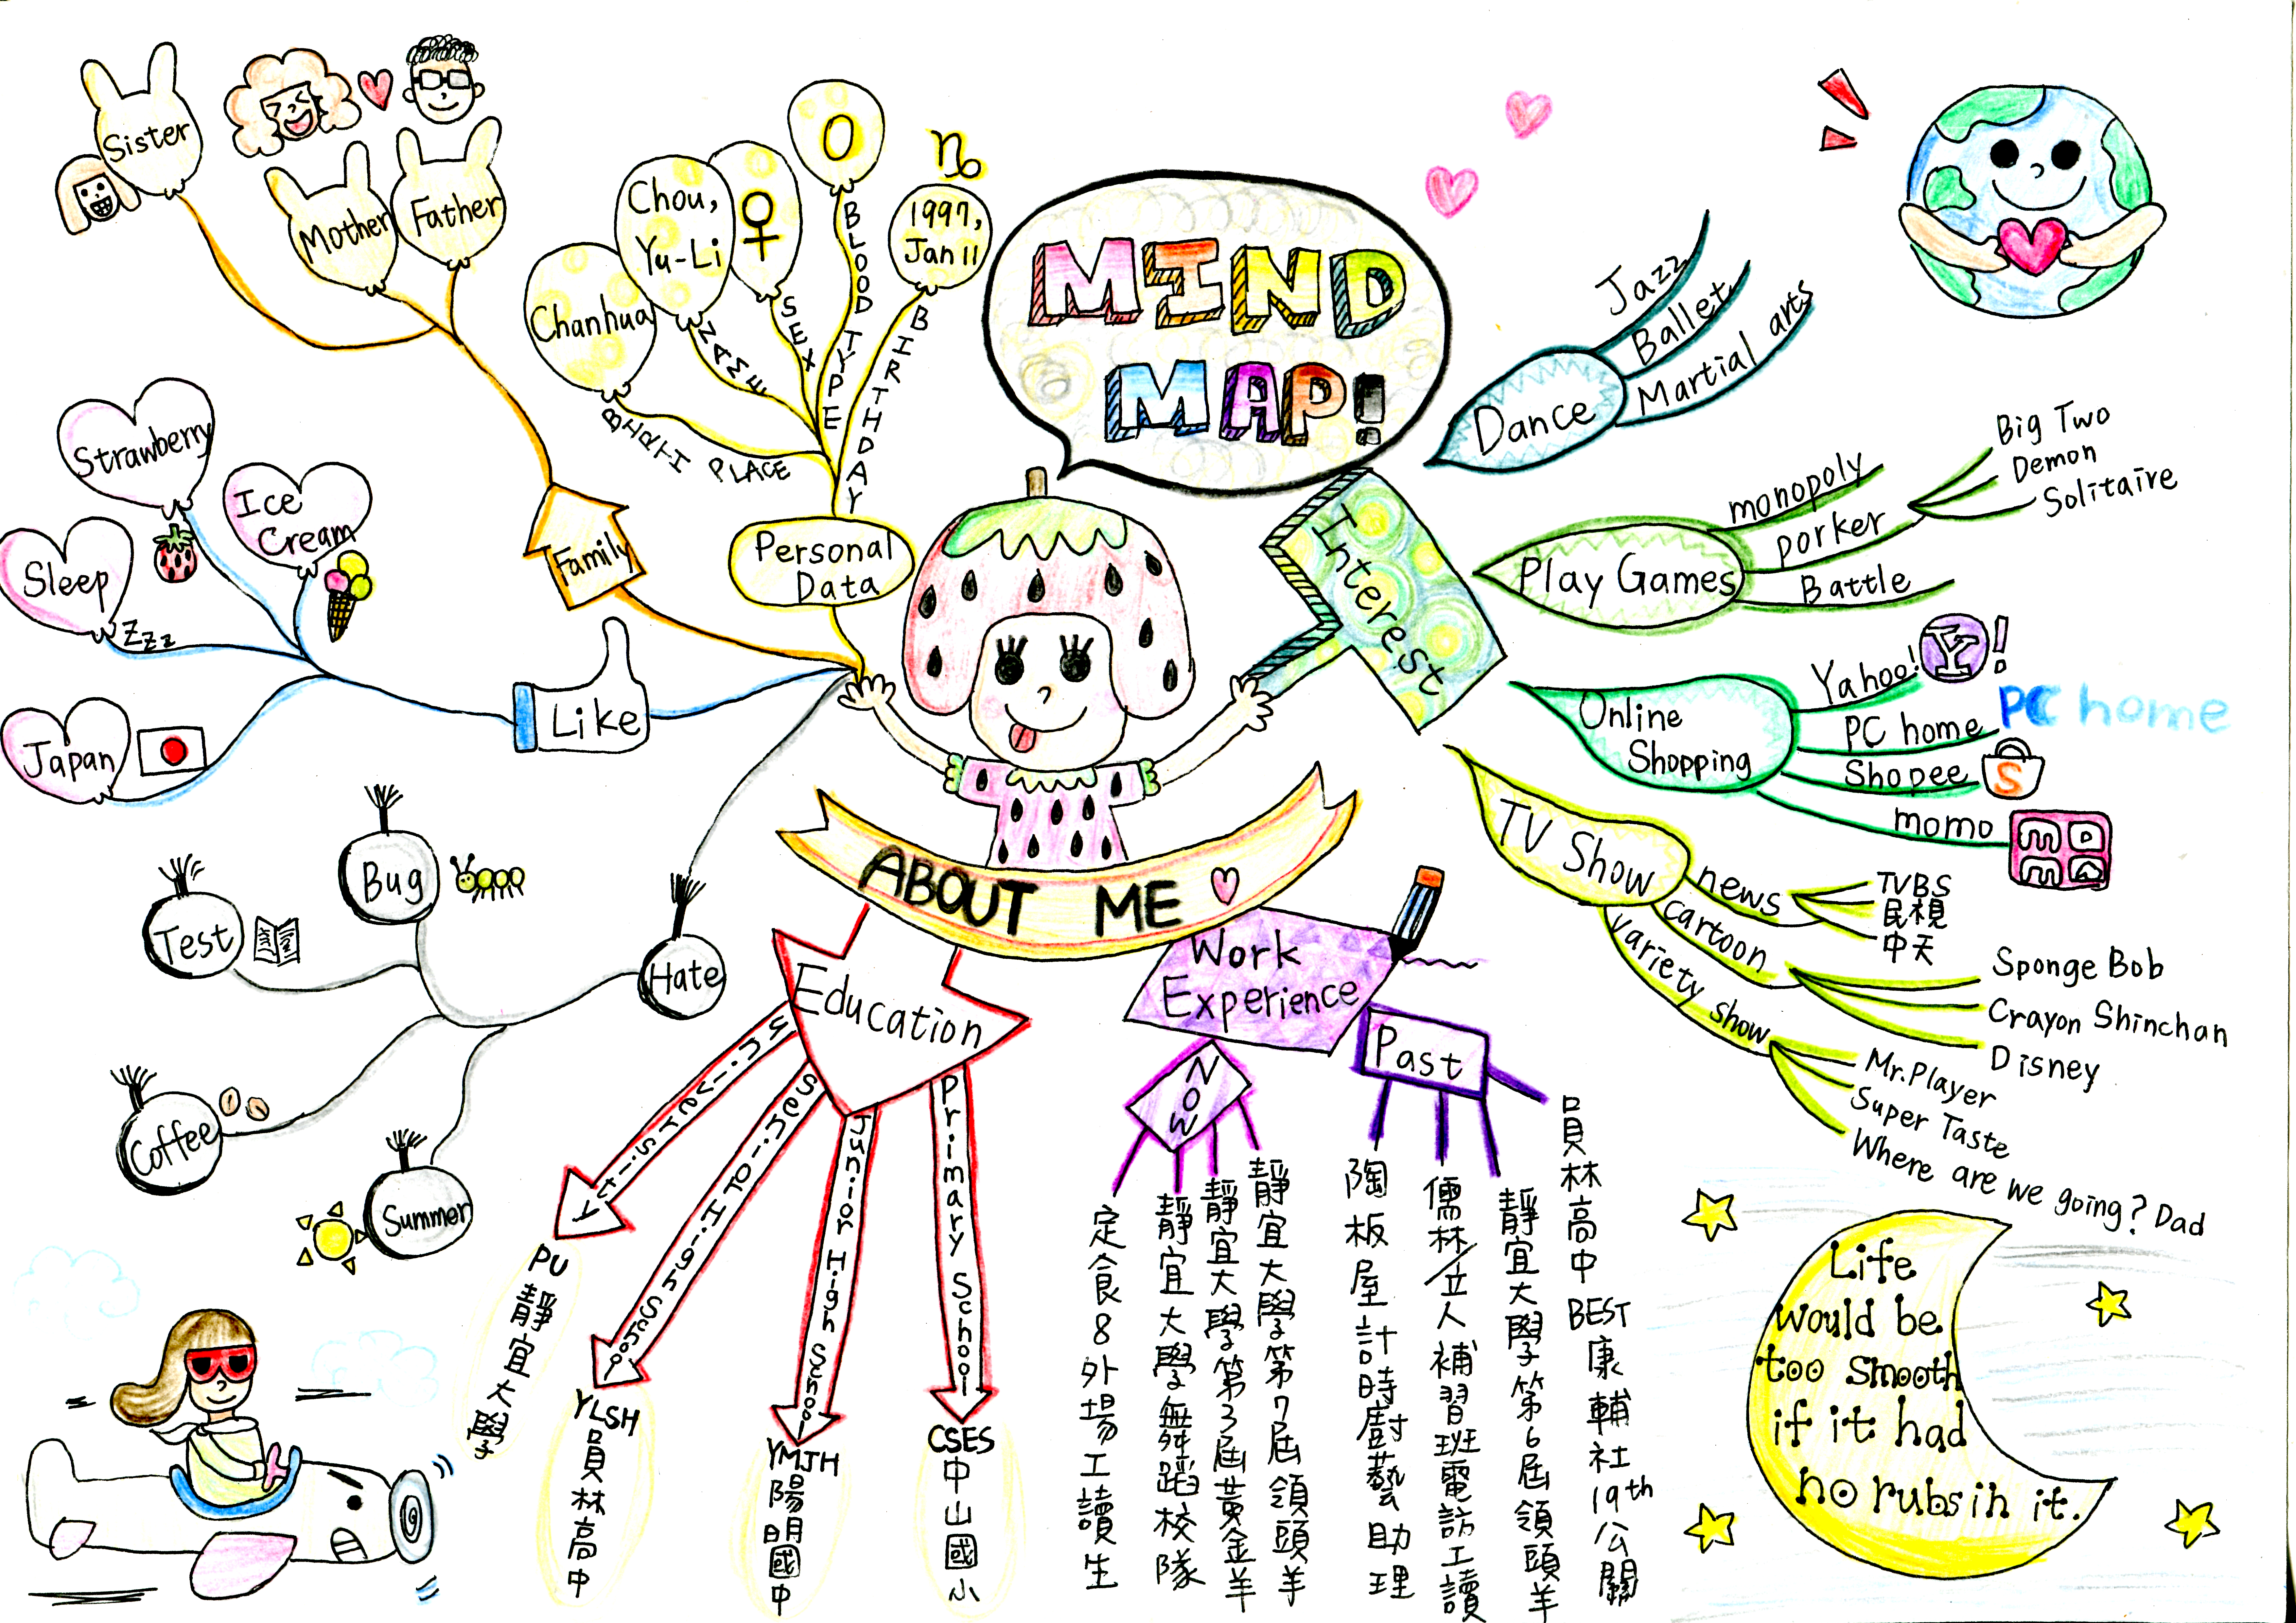 MIND
MAP!
ABOUT ME
Personal
Data
BIRTH PLACE
Chanhua
NAME
Chou,
Yu-Li
SEX
♀
BLOOD TYPE
O
BIRTHDAY
1997,
Jan 11
♑
Family
Sister
Mother
Father
Like
Strawberry
Ice
Cream
Sleep
Zzz
Japan
Hate
Bug
Test
Coffee
Summer
Education
University
PU
靜宜大學
Senior High School
YLSH
員林高中
Junior High School
YMJH
陽明國中
Primary School
CSES
中山國小
Work
Experience
NOW
定食8外場工讀生
靜宜大學舞蹈校隊
靜宜大學第3屆黃金羊
靜宜大學第7屆領頭羊
Past
陶板屋計時廚藝助理
儒林/立人補習班電訪工讀
靜宜大學第6屆領頭羊
員林高中BEST康輔社19th公關
Interest
Dance
Jazz
Ballet
Martial arts
Play Games
monopoly
porker
Big Two
Demon
Solitaire
Battle
Online
Shopping
Yahoo!
Y!
PC home
PC home
Shopee
S
momo
momo
TV Show
news
TVBS
民視
中天
cartoon
Sponge Bob
Crayon Shinchan
Disney
variety show
Mr.Player
Super Taste
Where are we going? Dad
Life
would be
too smooth
if it had
no rubsih it.